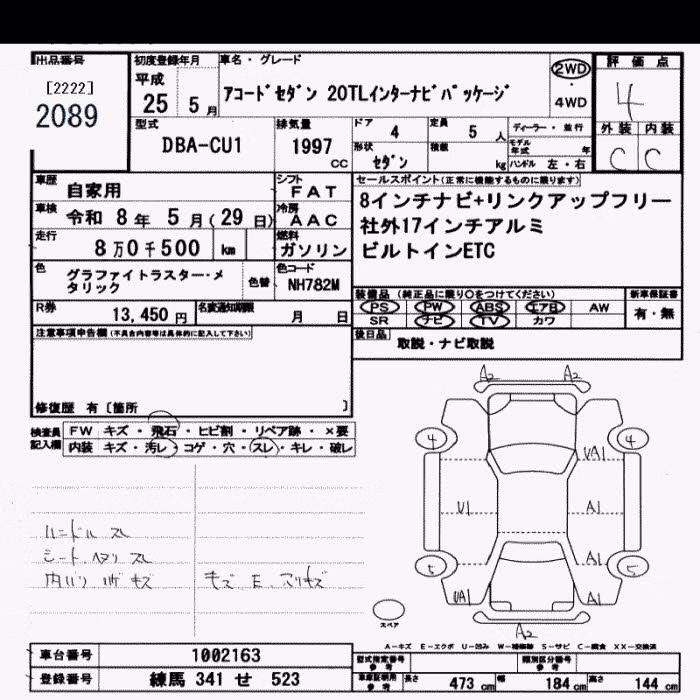 出品番号
[2222]
2089
初度登録年月
平成
25 5 月
車名・グレード
アコードセダン 20TLインターナビパッケージ
2WD
・
4WD
評価点
4
外装 内装
C C
型式
DBA-CU1
排気量
1997
cc
ドア
4
定員
5 人
形状
セダン
積載
kg
ディーラー・並行
モデル年式 年
ハンドル 左・右
車歴
自家用
シフト
FAT
車検
令和 8 年 5 月(29 日)
冷房
AAC
走行
8 万 0 千 500 km
燃料
ガソリン
色
グラファイトラスター・メタリック
色替
色コード
NH782M
R券
13,450 円
名変通知期限
月 日
セールスポイント(正常に機能するものに限ります)
8インチナビ+リンクアップフリー
社外17インチアルミ
ビルトインETC
装備品 (純正品に限り○をつけてください)
PS PW ABS エアB AW
SR ナビ TV カワ
新車保証書
有・無
後日品
取説・ナビ取説
注意事項申告欄(不具合内容等は具体的に記入して下さい)
修復歴 有〔箇所 〕
検査員記入欄
FW キズ・飛石・ヒビ割・リペア跡・×要
内装 キズ・汚レ・コゲ・穴・スレ・キレ・破レ
ハンドル スレ
シート、ヘタリ スレ
内バリ ハゲ キズ
キズ、E、スリキズ
A2 A2
4 4
UA1
U1 A1
A1
5 5
UA1 A1
A2
スペア
A-キズ E-エクボ U-凹み W-補修跡 S-サビ C-腐食 XX-交換済
車台番号
1002163
登録番号
練馬 341 せ 523
型式指定番号
参考
類別区分番号
参考
車庫証明用
参考
長さ 473 cm 幅 184 cm 高さ 144 cm